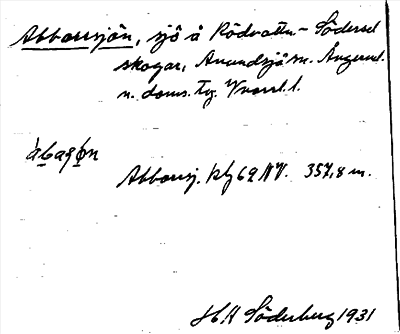 Abborrsjön, sjö å Rödvattn- Södersel
skogar, Anundsjö sn. Ångerml.
n. doms. tg. Vnorrl. l.
Abborrsj. kbl 62 NV. 357,8 m.
H.A Söderberg 1931